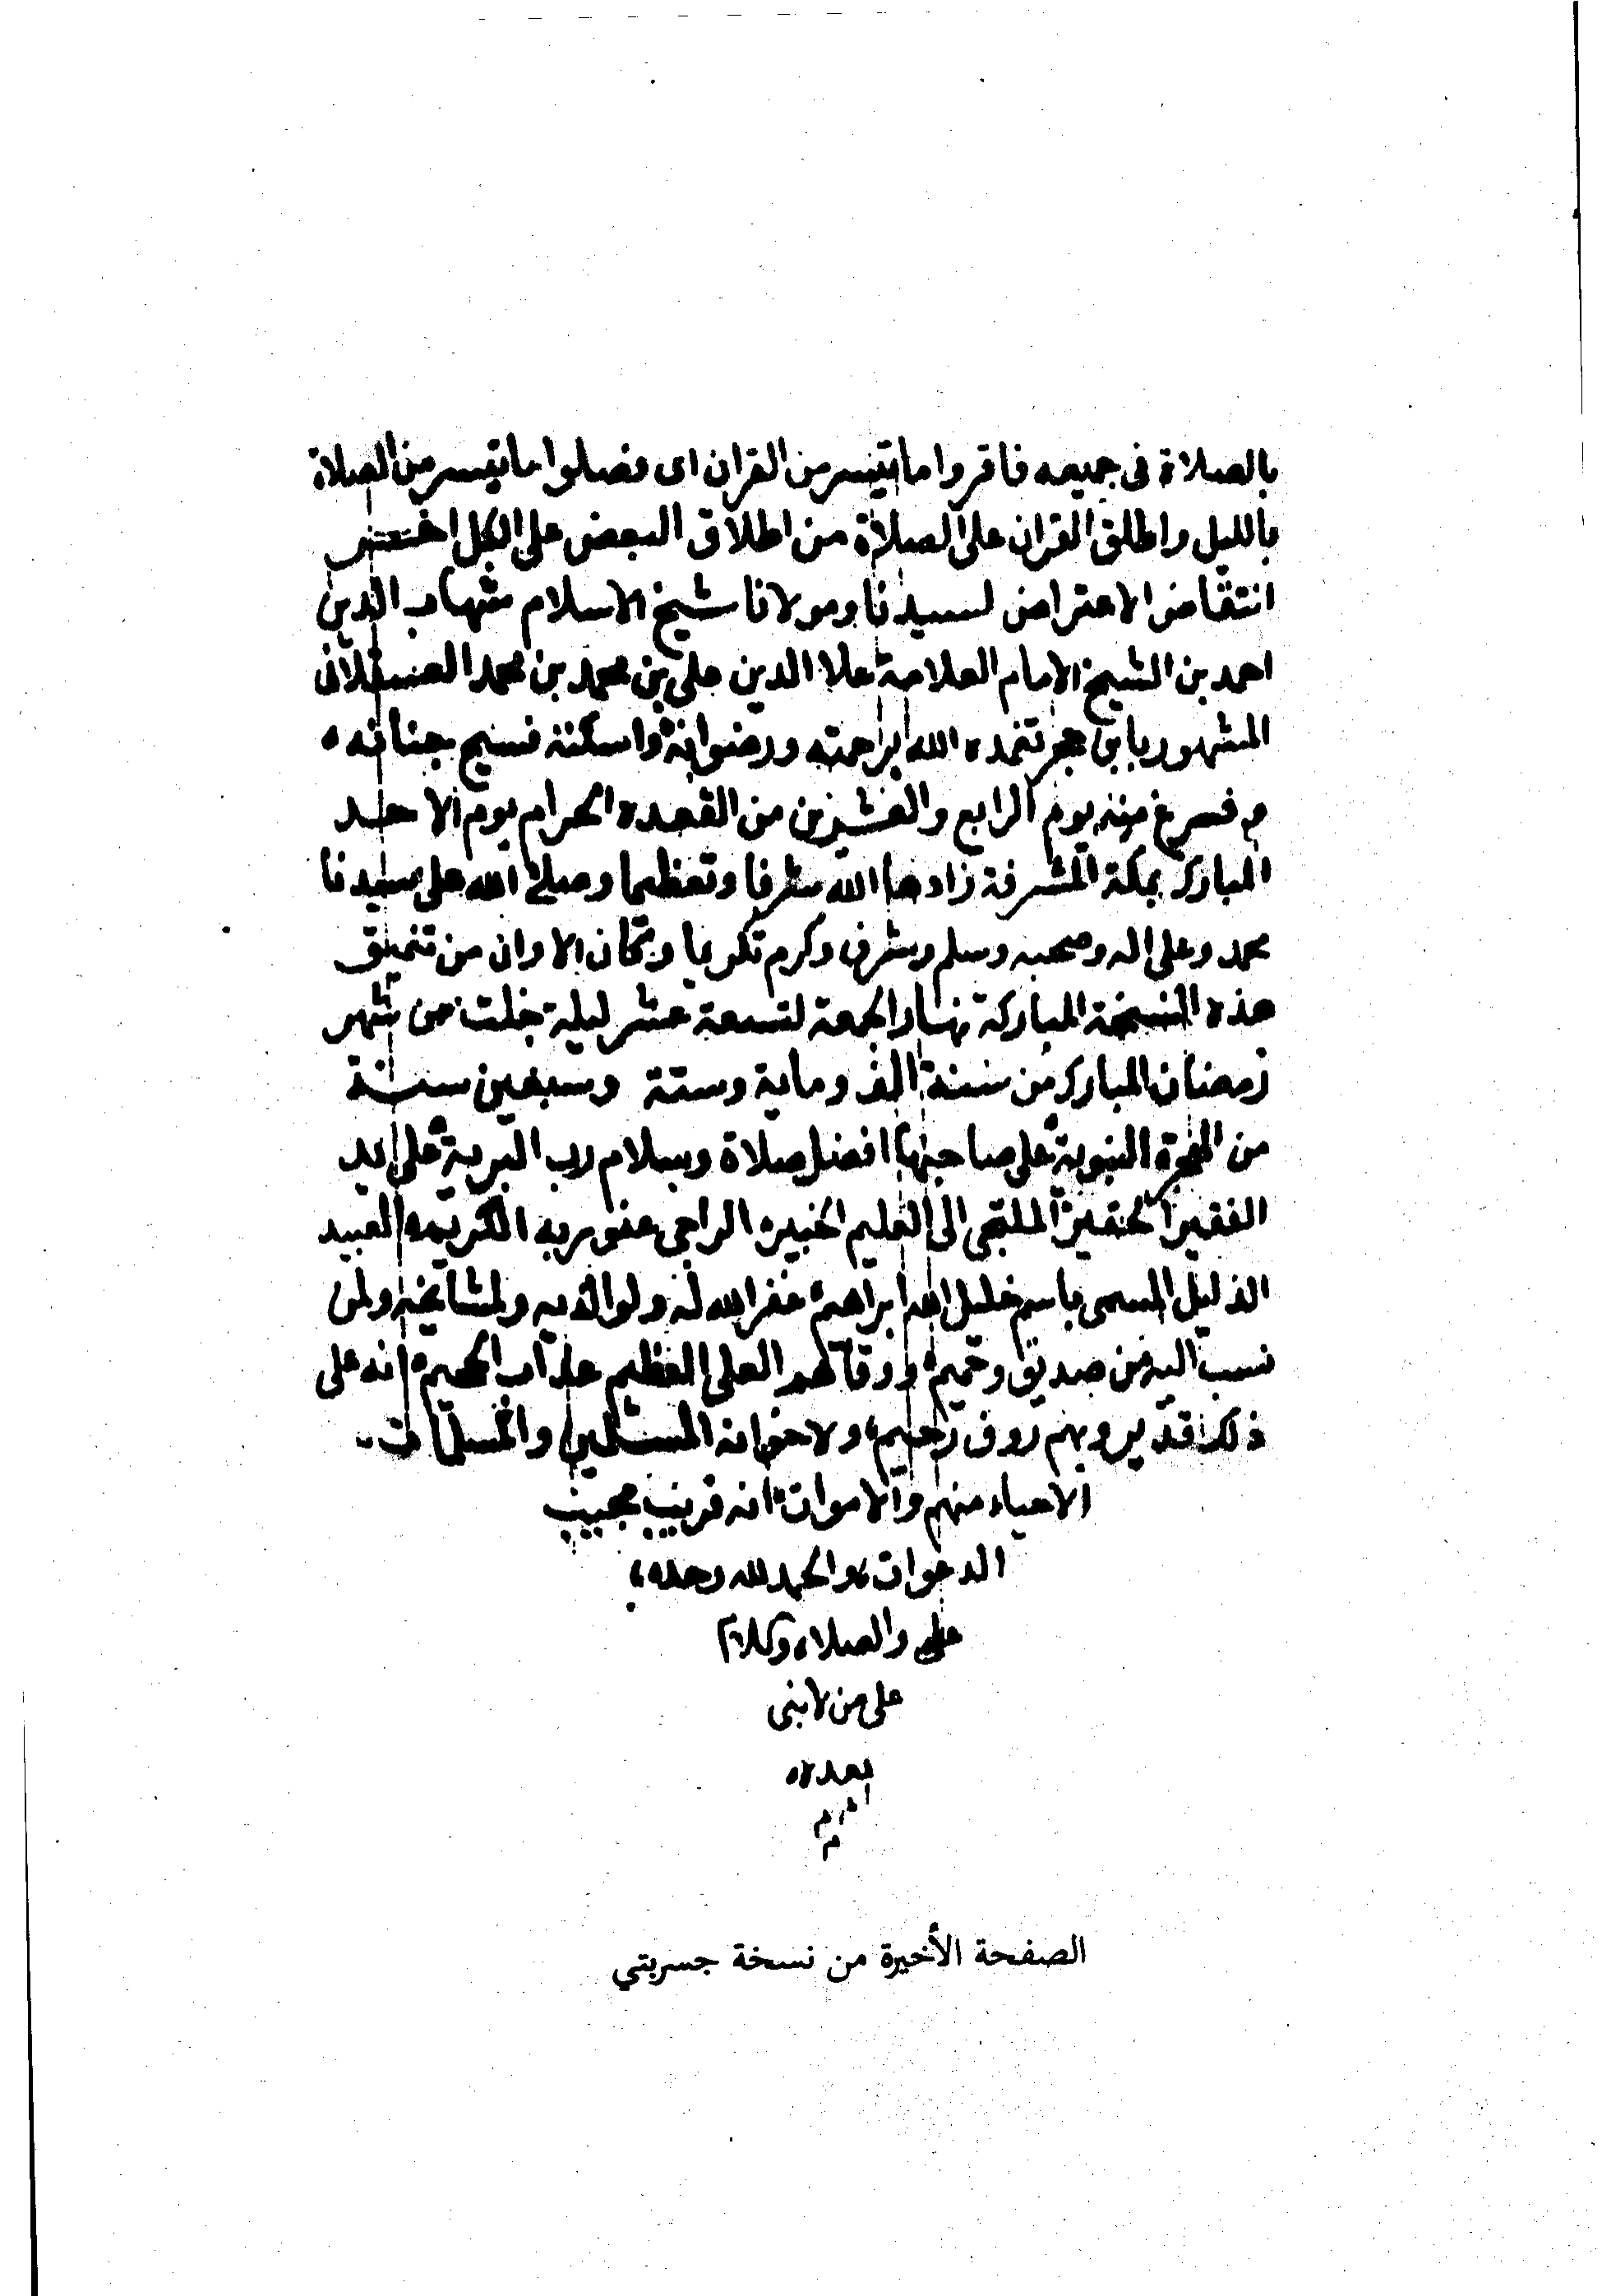 بالصلاة فى جميعه فاقروا ما تيسر من القران اى فصلوا ما تيسر من الصلاة
بالليل واطلق القران على الصلاة من اطلاق البعض على الكل اختصر
انتقاض الاعتراض لسيدنا ومولانا شيخ الاسلام شهاب الدين
احمد بن الشيخ الامام العلامة علا الدين على بن محمد بن محمد العسقلانى
المشهور بابن حجر تغمده الله برحمته ورضوانه واسكنه فسيح جنانه
فرغ منه يوم الرابع والعشرين من القعده الحرام يوم الاحد
المبارك بمكة المشرفة زادها الله شرفا وتعظيما وصلى الله على سيدنا
محمد وعلى اله وصحبه وسلم وشرف وكرم تكريما وكان الاوان من تنميق
هذه النسخة المباركة نهار الجمعة لتسعة عشر ليلة خلت من شهر
رمضان المبارك من سنة الف وماية وستة وسبعين سنة
من الهجرة النبوية على صاحبها افضل صلاة وسلام رب البرية على يد
الفقير الحقير الملتجى الى العليم الخبير الراجى عفو ربه الكريم العبيد
الذليل المسمى باسم خليل الله ابراهيم غفر الله له ولوالديه ولمشايخه ولمن
نسب اليه من صديق وحميم ووقاهم العلى العظيم عذاب الجحيم انه على
ذلك قدير وبهم روف رحيم ولاخوانه المسلمين والمسلمات
الاحياء منهم والاموات انه قريب مجيب
الدعوات والحمد لله وحده
والصلاه والسلام
على من لا نبى
بعده
الصفحة الأخيرة من نسخة جسربتي